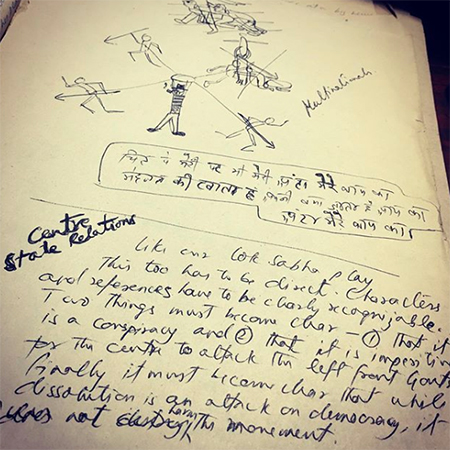 Multinationals
चित भी मेरी पट भी मेरी अंटा मेरे बाप का
की है बाप का
अंटा मेरे बाप का
Centre
State Relations
Like our Lok Sabha play
This too has to be direct. Characters
and references have to be clearly recognizable.
Two things must become clear — ① that it
is a conspiracy and ② that it is imperative
for the centre to attack the left front Govts
Finally it must become clear that while
dissolution is an attack on democracy, it
does not destroy harm the movement.